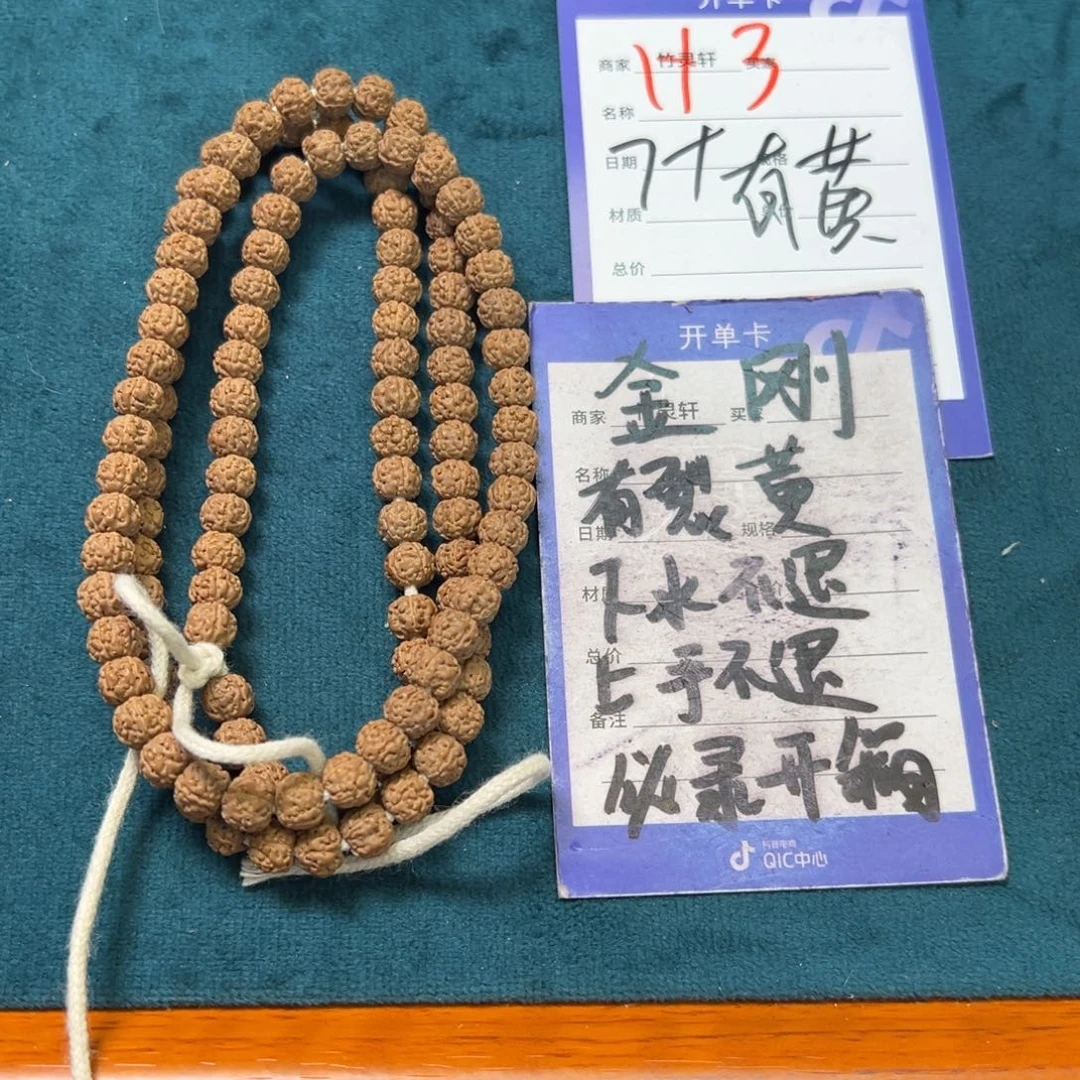 开单卡
商家 竹灵轩 买家
113
名称
日期 规格
7十有黄
材质
总价
开单卡
金刚
商家 竹灵轩 买家
名称
有裂黄
日期 规格
下水不退
材质
总价
上手不退
备注
必录开箱
抖音电商
QIC中心